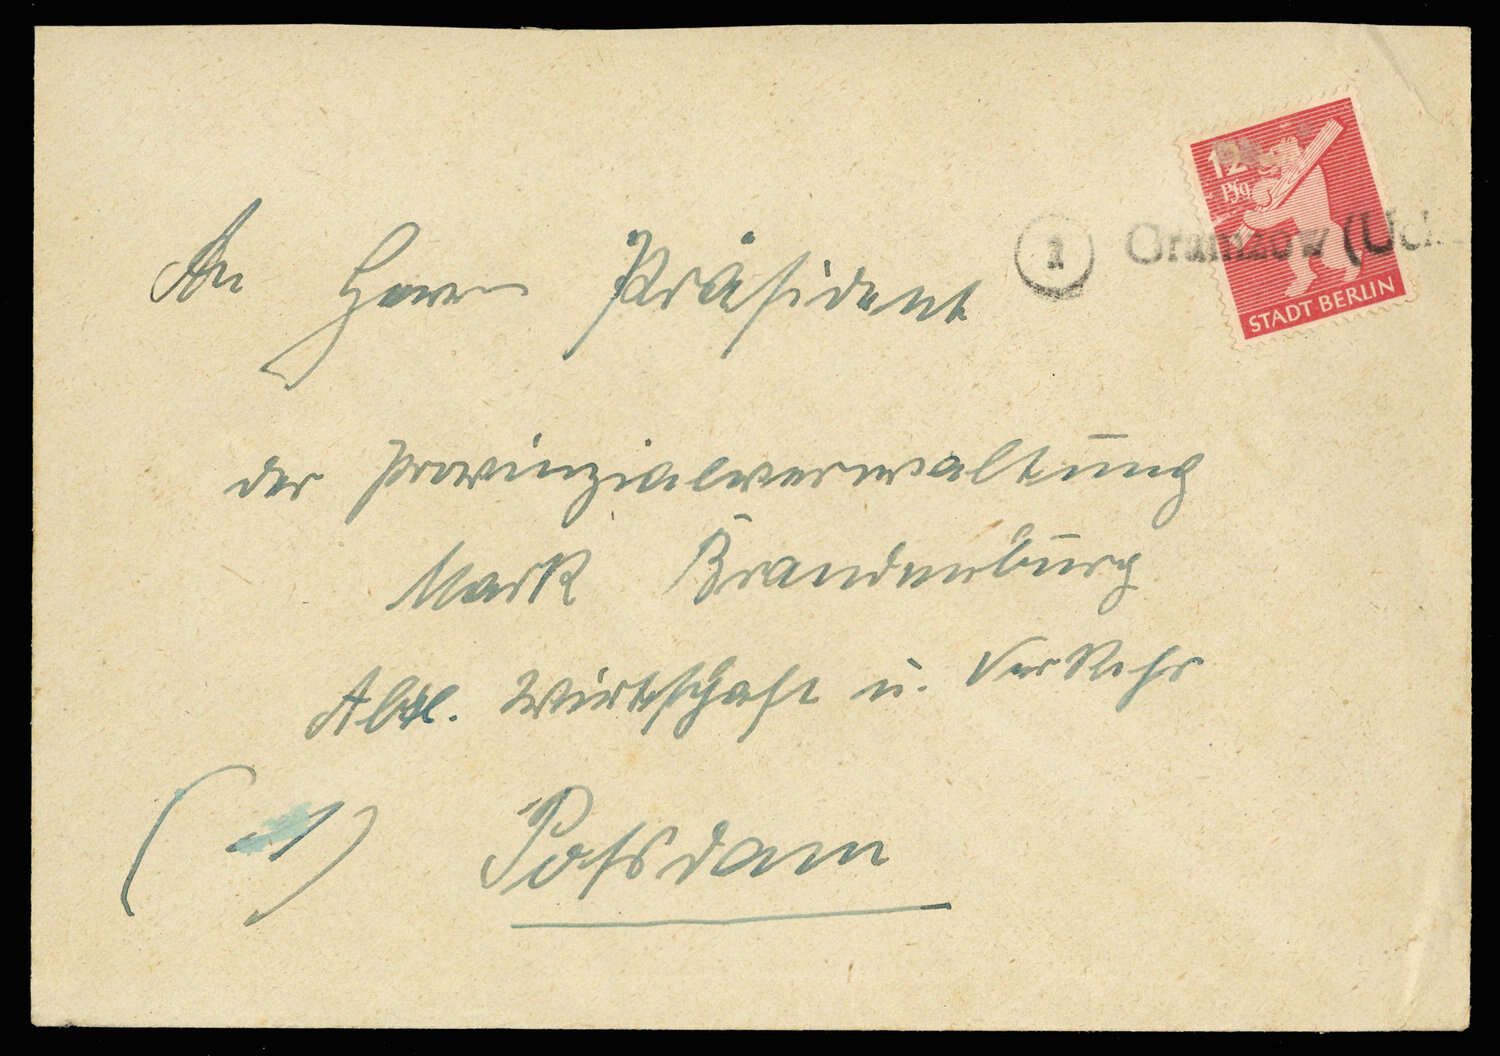 12
Pfg
1 Gramzow (Uck
STADT BERLIN
An Herrn Präsident
der Provinzialverwaltung
Mark Brandenburg
Abtl. Wirtschaft u. Verkehr
(1) Potsdam